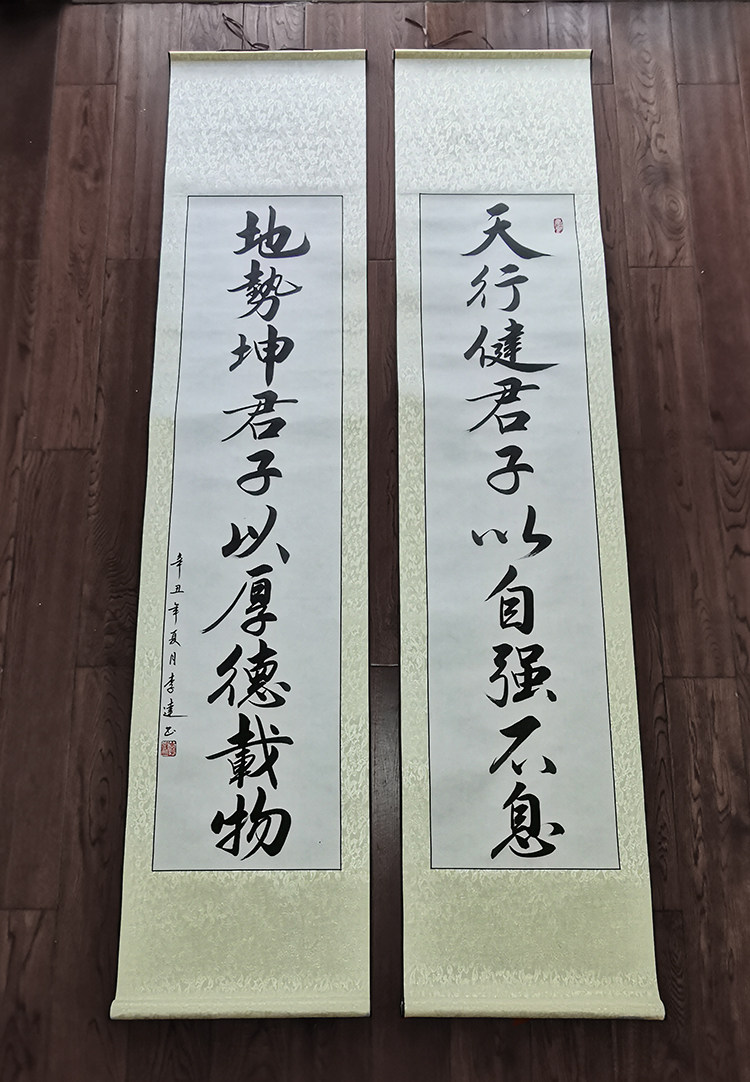 天行健君子以自强不息
地勢坤君子以厚德載物
辛丑年夏月李建